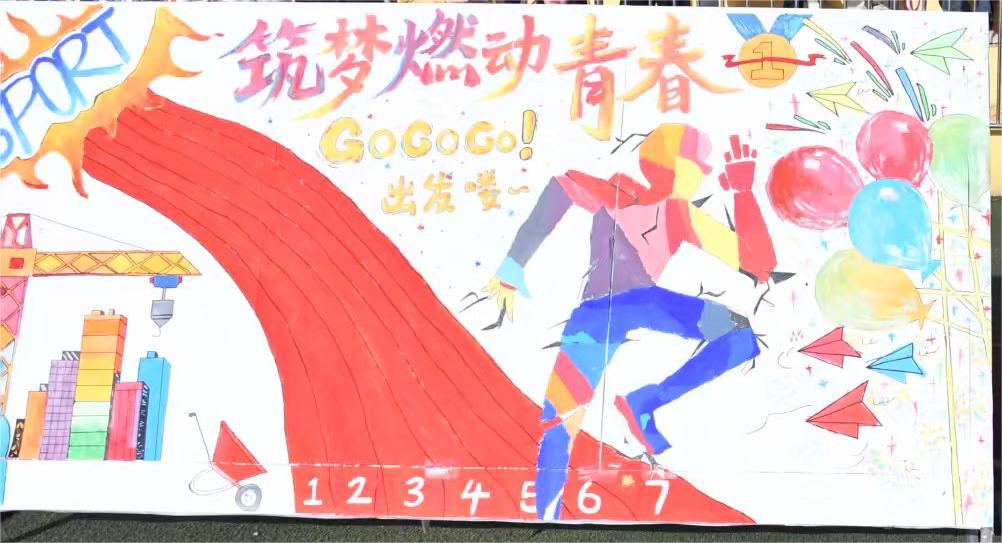 SPORT
筑梦燃动青春
1
GoGoGo!
出发喽~
1 2 3 4 5 6 7